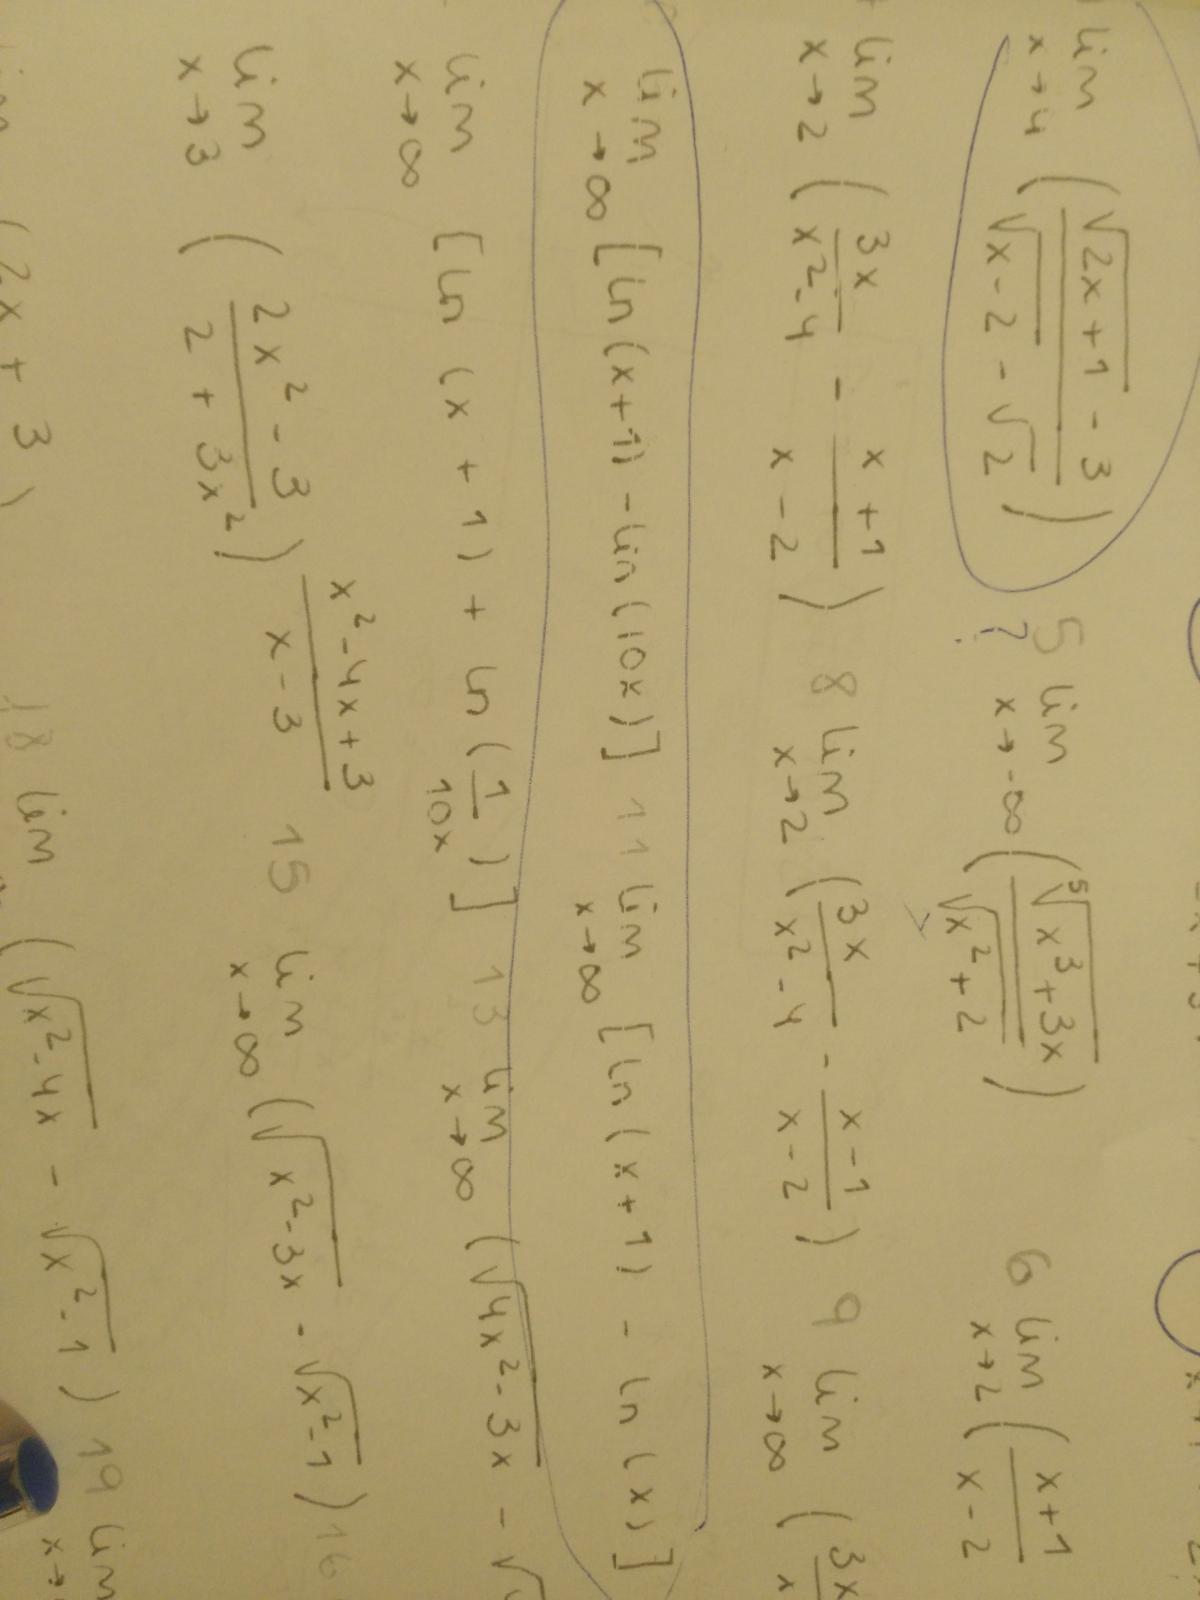 lim x→4 ( (√(2x+1) - 3) / (√(x-2) - √2) ) 5 lim x→-∞ ( ⁵√(x³+3x) / √(x²+2) ) 6 lim x→2 ( (x+1) / (x-2)
?
lim x→2 ( 3x / (x²-4) - (x+1) / (x-2) ) 8 lim x→2 ( 3x / (x²-4) - (x-1) / (x-2) ) 9 lim x→∞ ( 3x / x
lim x→∞ [ln(x+1) - lin(10x)] 11 lim x→∞ [ln(x+1) - ln(x)]
lim x→∞ [ln(x+1) + ln(1/10x)] 13 lim x→∞ (√(4x²-3x) - √
lim x→3 ( (2x²-3) / (2+3x²) )^((x²-4x+3) / (x-3)) 15 lim x→∞ (√(x²-3x) - √(x²-1)) 16
(2x+3) 18 lim (√(x²-4x) - √(x²-1)) 19 lim x→